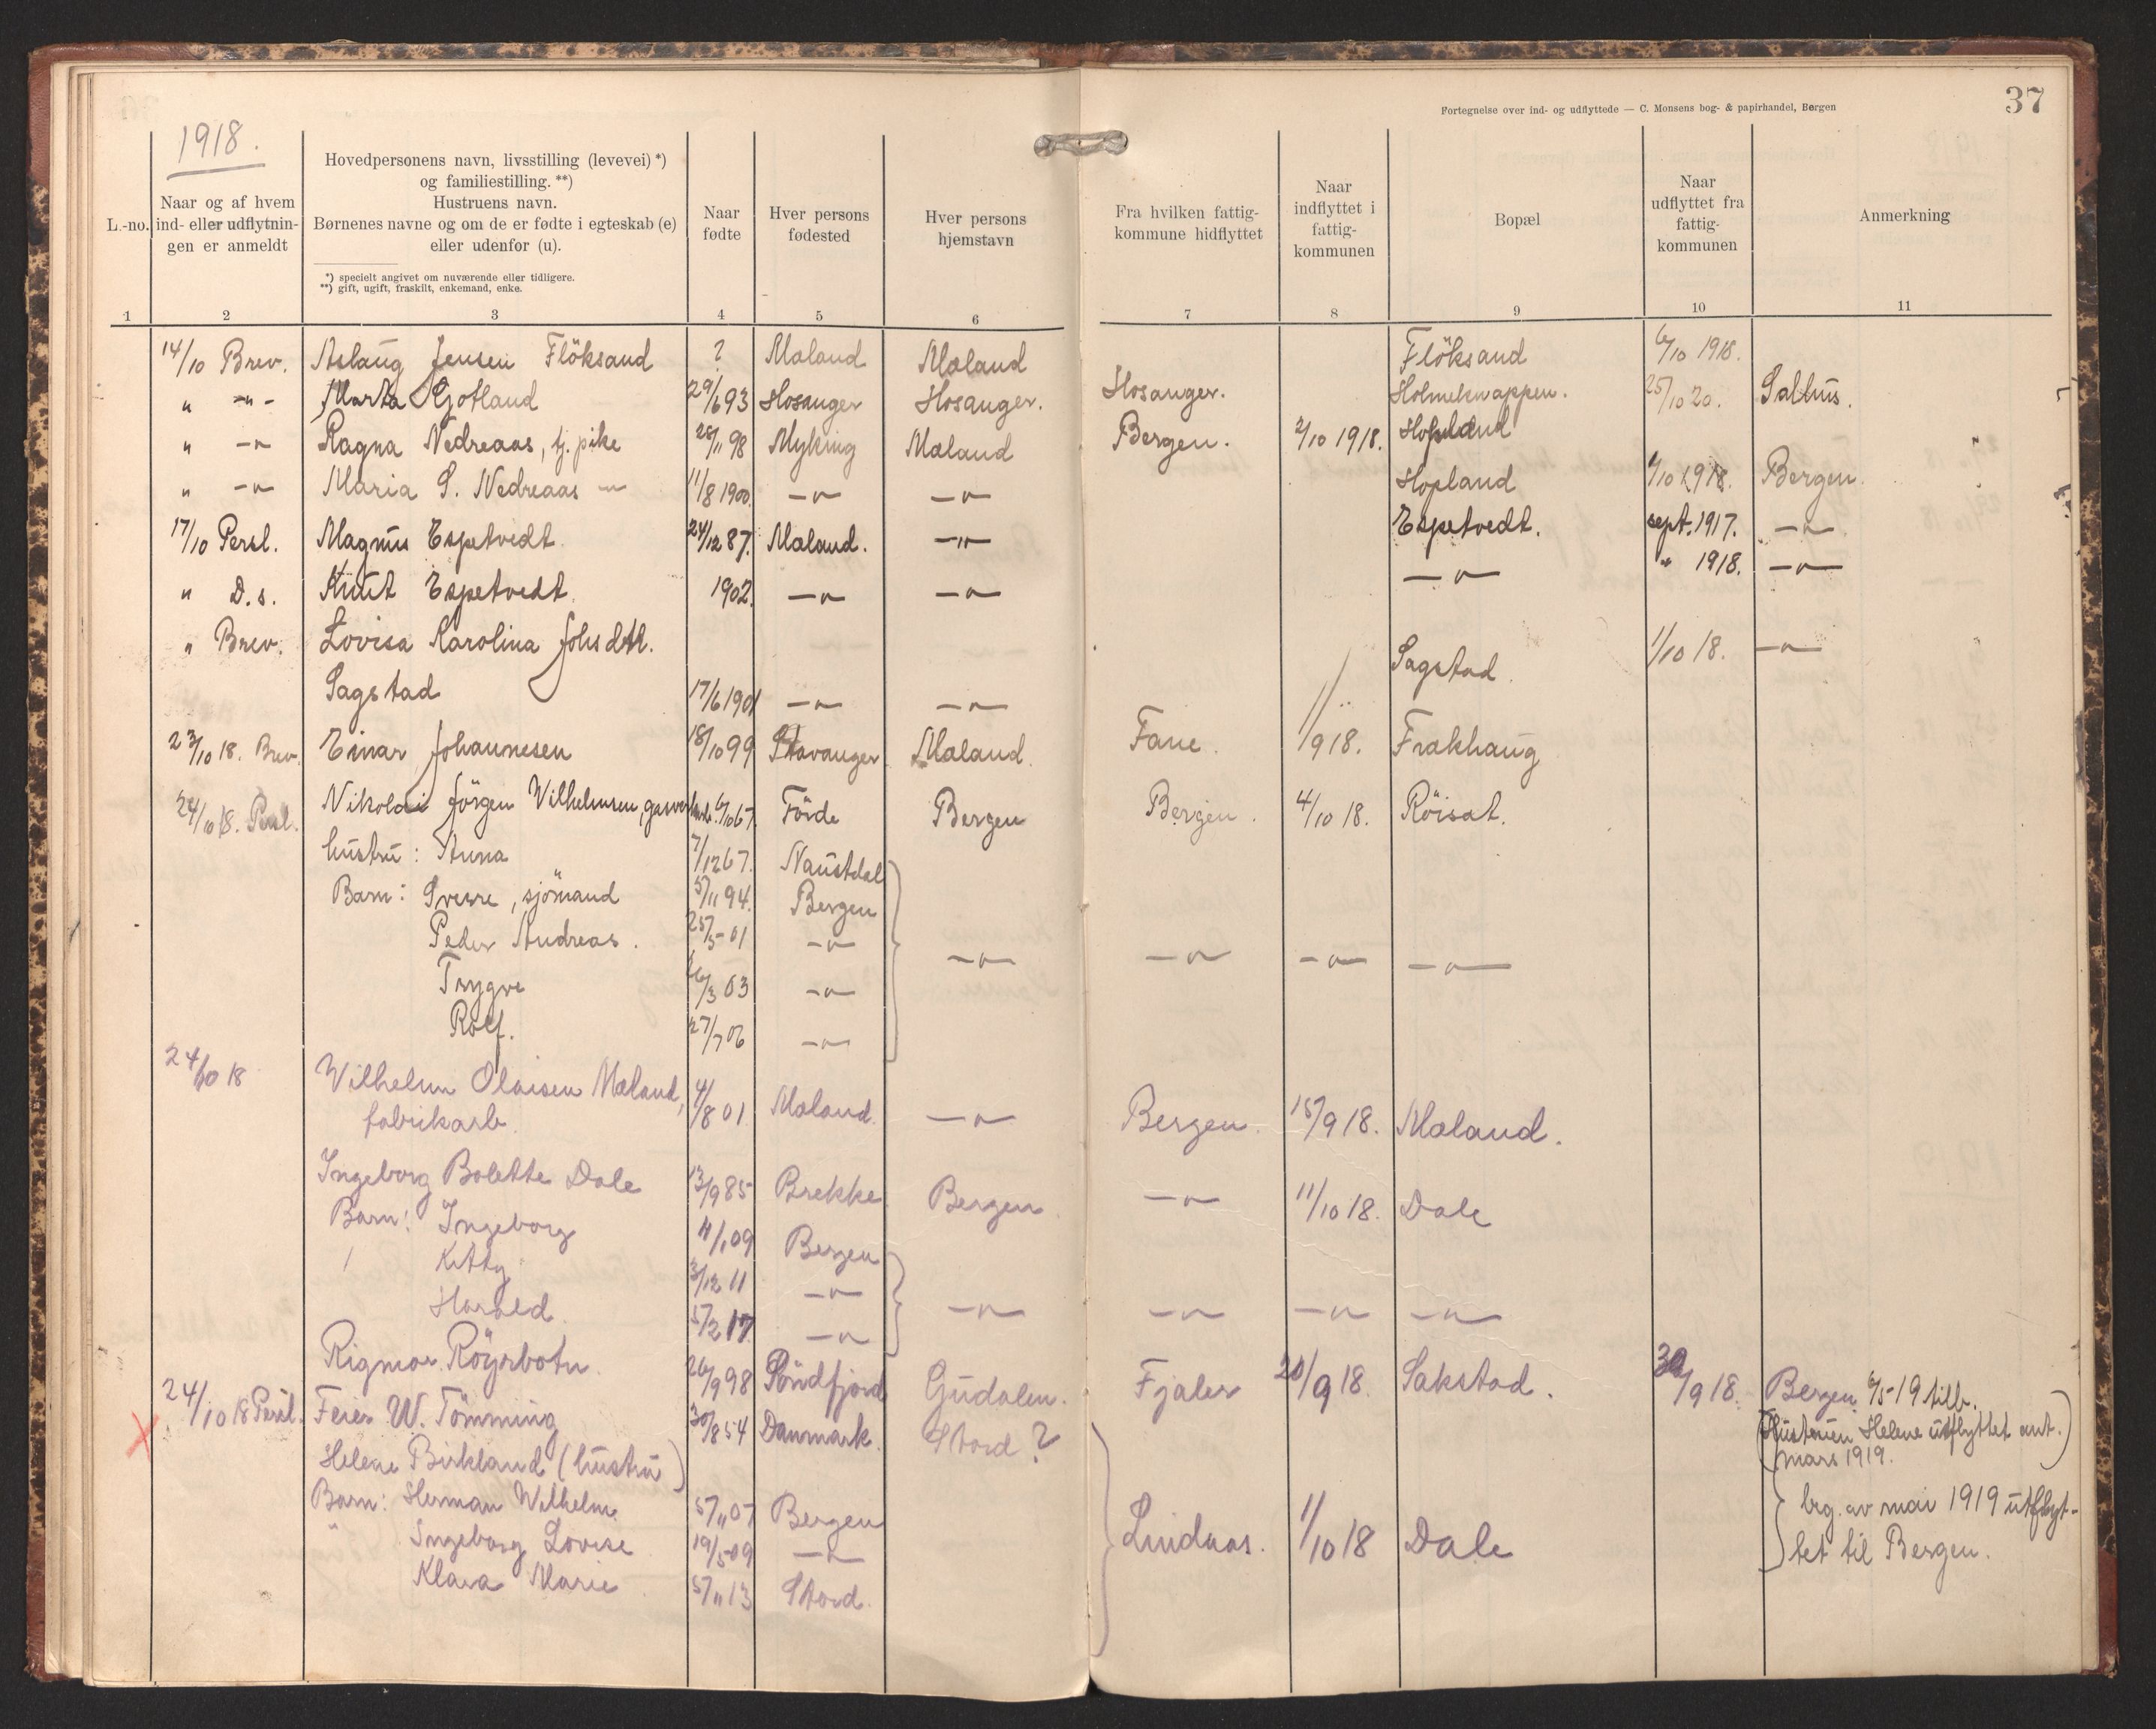 Fortegnelse over ind- og udflyttede — C. Monsens bog- & papirhandel, Bergen
37
1918.
L.-no.
Naar og af hvem ind- eller udflytnin- gen er anmeldt
Hovedpersonens navn, livsstilling (levevei) *) og familiestilling. **) Hustruens navn. Børnenes navne og om de er fødte i egteskab (e) eller udenfor (u).
*) specielt angivet om nuværende eller tidligere.
**) gift, ugift, fraskilt, enkemand, enke.
Naar fødte
Hver persons fødested
Hver persons hjemstavn
Fra hvilken fattig- kommune hidflyttet
Naar indflyttet i fattig- kommunen
Bopæl
Naar udflyttet fra fattig- kommunen
Anmerkning
1 2 3 4 5 6 7 8 9 10 11
14/10 Brev. Aslaug Jensen Flöksand ? Mæland Mæland Flöksand 6/10 1918.
" -"- Marta Kjotland 29/6 93 Hosanger Hosanger. Hosanger. Holmeknappen. 25/10 20. Salhus.
" -"- Ragna Nedreaas, tj. pike 28/11 98 Myking Mæland Bergen. 2/10 1918. Hopland
" -"- Maria S. Nedreaas -"- 11/8 1900. -"- -"- Hopland 1/10 1918. Bergen
17/10 Persl. Magnus Espetvedt. 24/12 87. Mæland. -"- Espetvedt. sept. 1917. -"-
" D.s. Knut Espetvedt. 1902. -"- -"- -"- " 1918. -"-
" Brev. Lovisa Karolina Johsdtr.
Sagstad 17/6 1901 -"- -"- Sagstad. 1/10 18. -"-
23/10 18. Brev. Einar Johannesen 18/10 99 Stavanger Mæland. Fane. 1/9 18. Frækhaug
24/10 18. Persl. Nikolai Jörgen Wilhelmsen, 6/10 67. Förde Bergen Bergen. 4/10 18. Röisat.
hustru: Anna 7/12 67. Naustdal
Barn: Sverre, sjömand 5/11 94. Bergen
Peder Andreas. 25/5-01 -"- -"- -"- -"- -"-
Trygve 26/3 03 -"-
Rolf. 27/7 06 -"-
24/10 18 Wilhelm Olaisen Mæland,
fabrikarb. 4/8 01 Mæland. -"- Bergen. 15/9 18. Mæland.
Ingeborg Bolette Dale 13/9 85 Brekke Bergen -"- 11/10 18. Dale
Barn: Ingeborg 4/1 09 Bergen
Kitty 3/12 11 -"-
Harald. 5/2 17 -"- -"- -"- -"- -"-
Rigmor Röysbotn. 26/9 98 Söndfjord Gudalen. Fjaler 20/9 18. Sakstad. 30/9 18. Bergen. 6/5-19 tilb.
24/10 18 Persl. Feier W. Tömming 30/8 54 Danmark. Stord? (Hustruen Helene utflyttet ant.
mars 1919.)
Helene Birkland (hustru)
Barn: Herman Wilhelm 5/11 07 Bergen Lindaas. 1/10 18 Dale beg. av mai 1919 utflyt-
Ingeborg Lovise 19/5 09 -"- tet til Bergen.
Klara Marie 5/11 13 Stord.